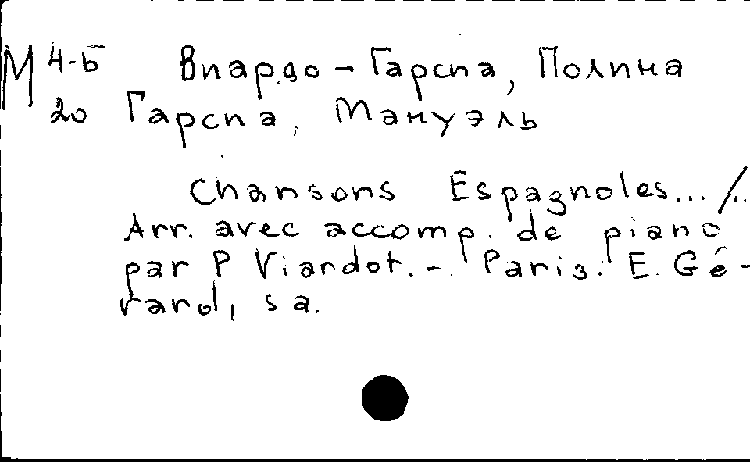 М 4-Б Виардо-Гарсиа, Полина
20 Гарсиа, Мануэль
Chansons Espagnoles... /..
Arr. avec accomp. de piano
par P Viardot. -. Paris. E. Gé-
rard, s a.